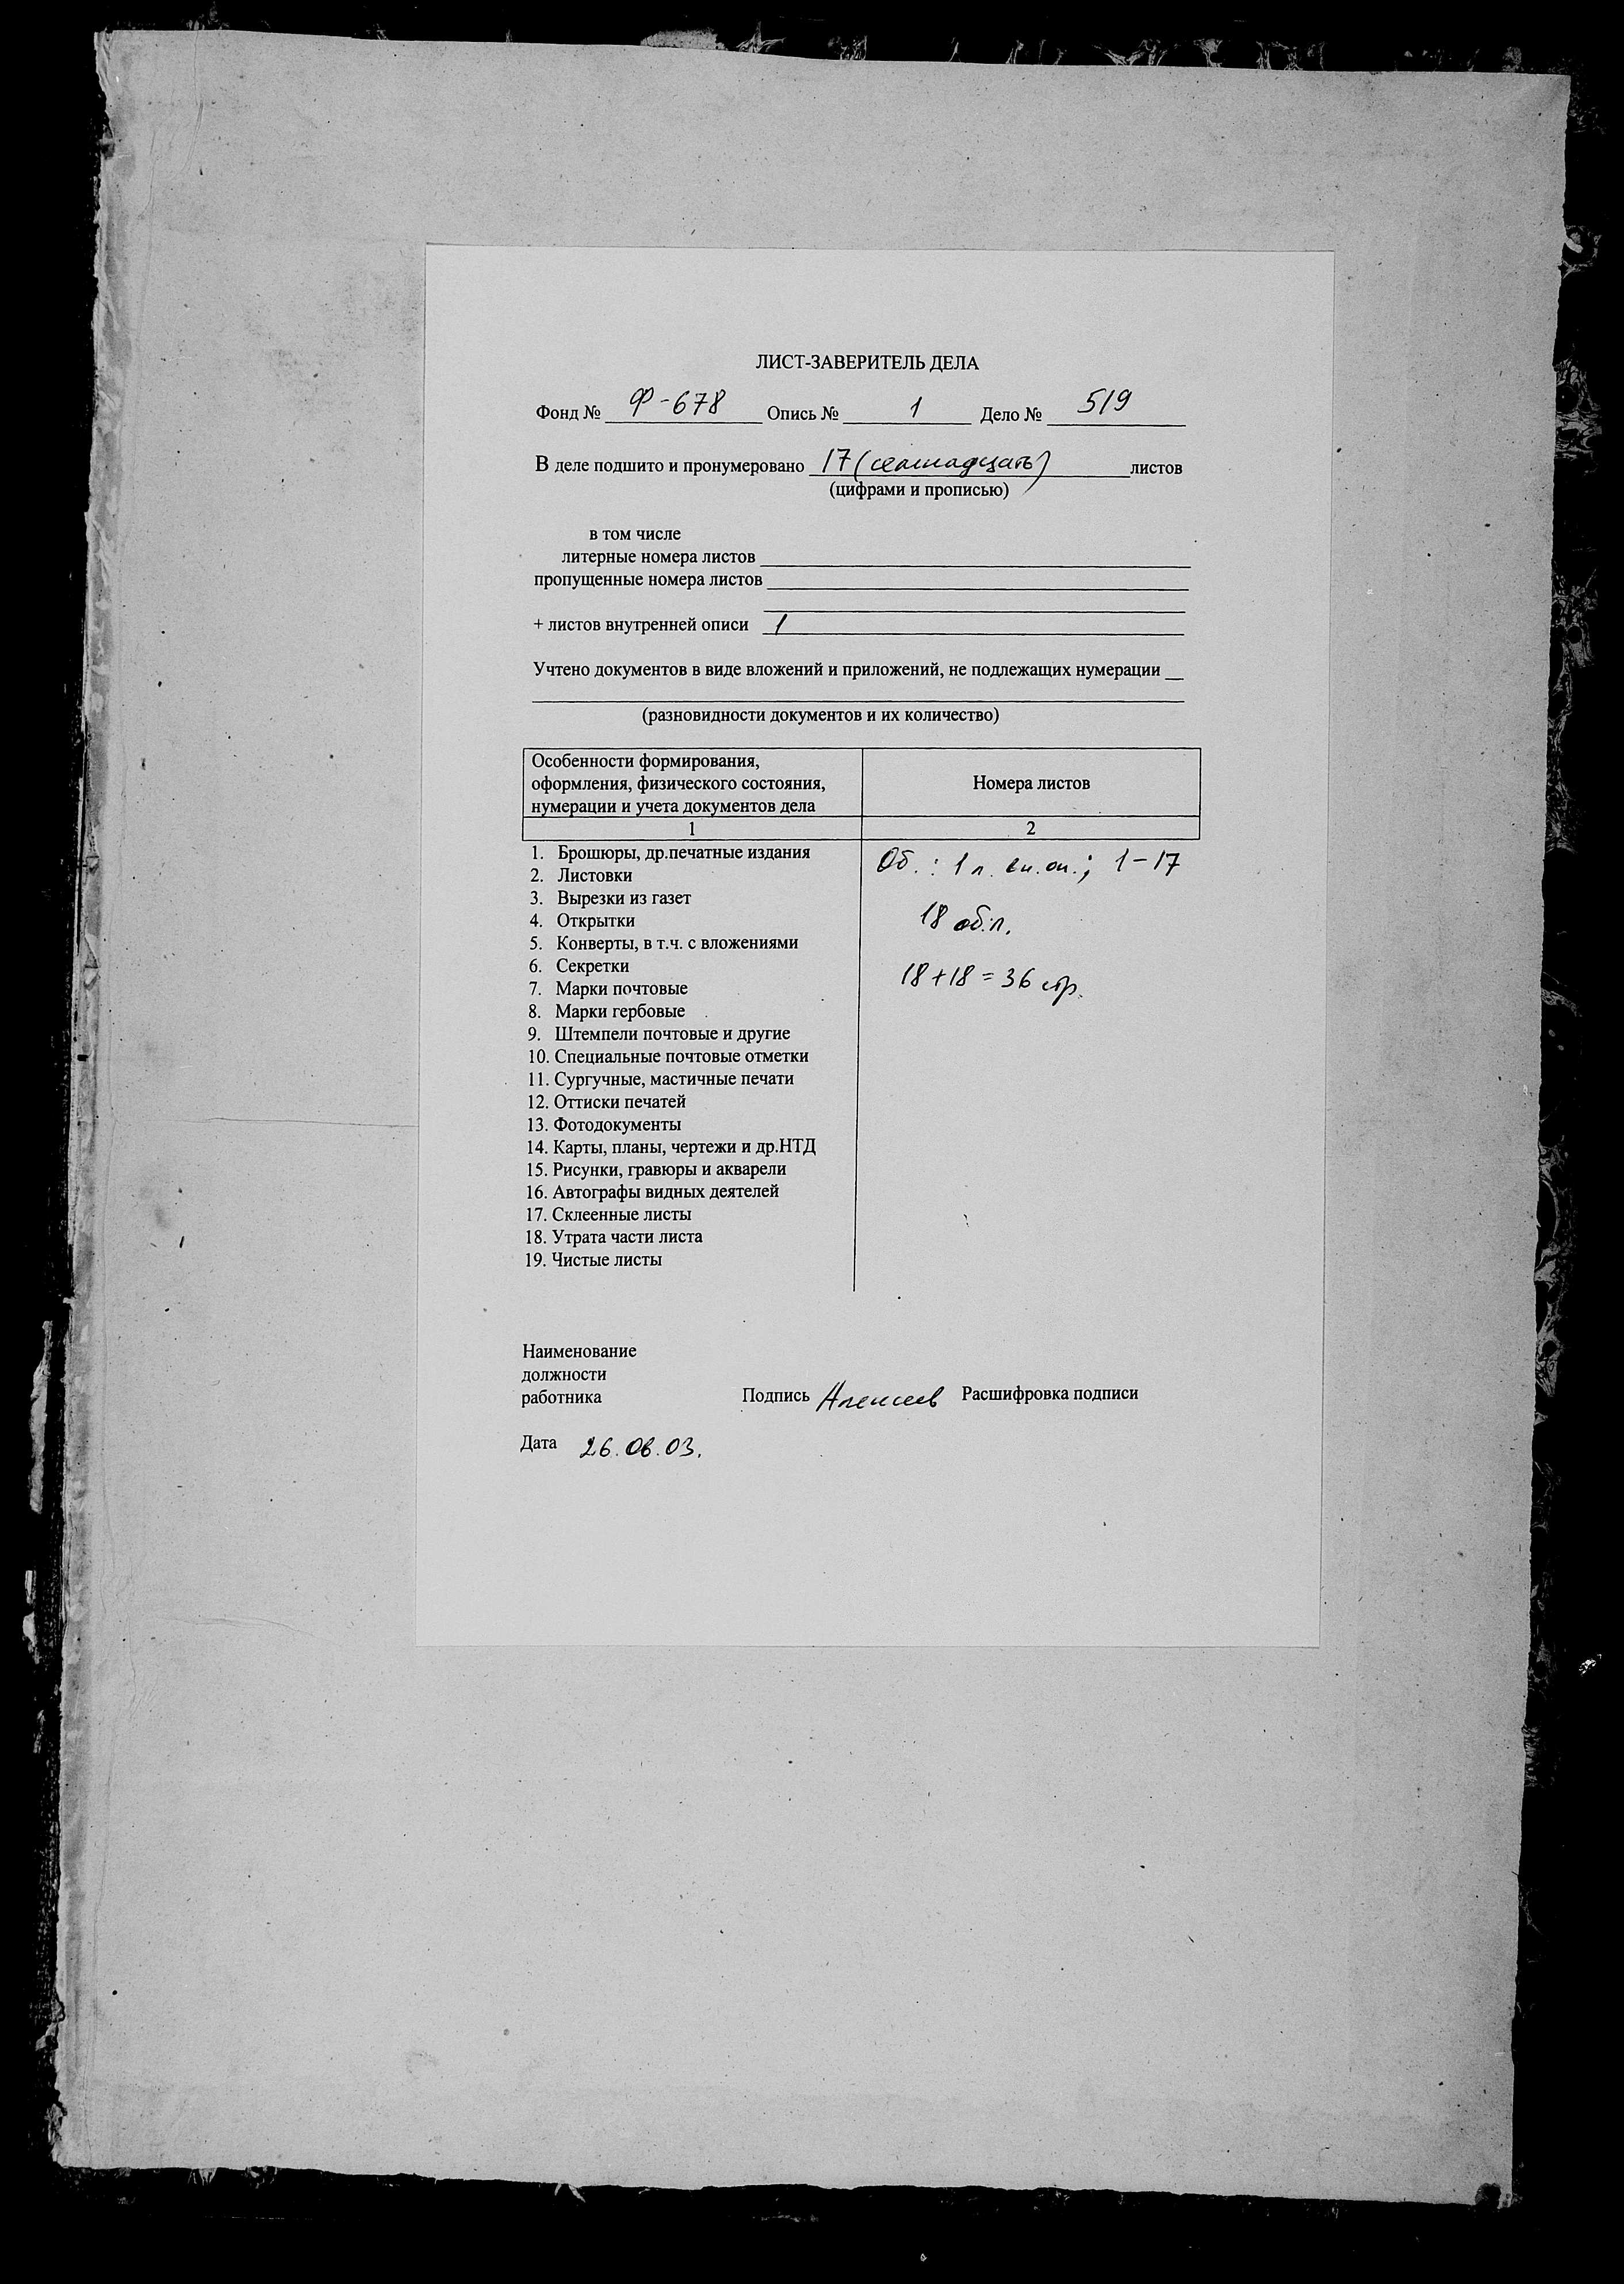 ЛИСТ-ЗАВЕРИТЕЛЬ ДЕЛА
Фонд № Ф-678 Опись № 1 Дело № 519
В деле подшито и пронумеровано 17 (семнадцать) листов
(цифрами и прописью)
в том числе
литерные номера листов
пропущенные номера листов
+ листов внутренней описи 1
Учтено документов в виде вложений и приложений, не подлежащих нумерации
(разновидности документов и их количество)
Особенности формирования,
оформления, физического состояния,
нумерации и учета документов дела
Номера листов
1 2
1. Брошюры, др.печатные издания
2. Листовки
3. Вырезки из газет
4. Открытки
5. Конверты, в т.ч. с вложениями
6. Секретки
7. Марки почтовые
8. Марки гербовые
9. Штемпели почтовые и другие
10. Специальные почтовые отметки
11. Сургучные, мастичные печати
12. Оттиски печатей
13. Фотодокументы
14. Карты, планы, чертежи и др.НТД
15. Рисунки, гравюры и акварели
16. Автографы видных деятелей
17. Склеенные листы
18. Утрата части листа
19. Чистые листы
Об.: 1 л. вн.оп.; 1-17
18 об.л.
18+18=36 стр.
Наименование
должности
работника Подпись Алексеев Расшифровка подписи
Дата 26.06.03.